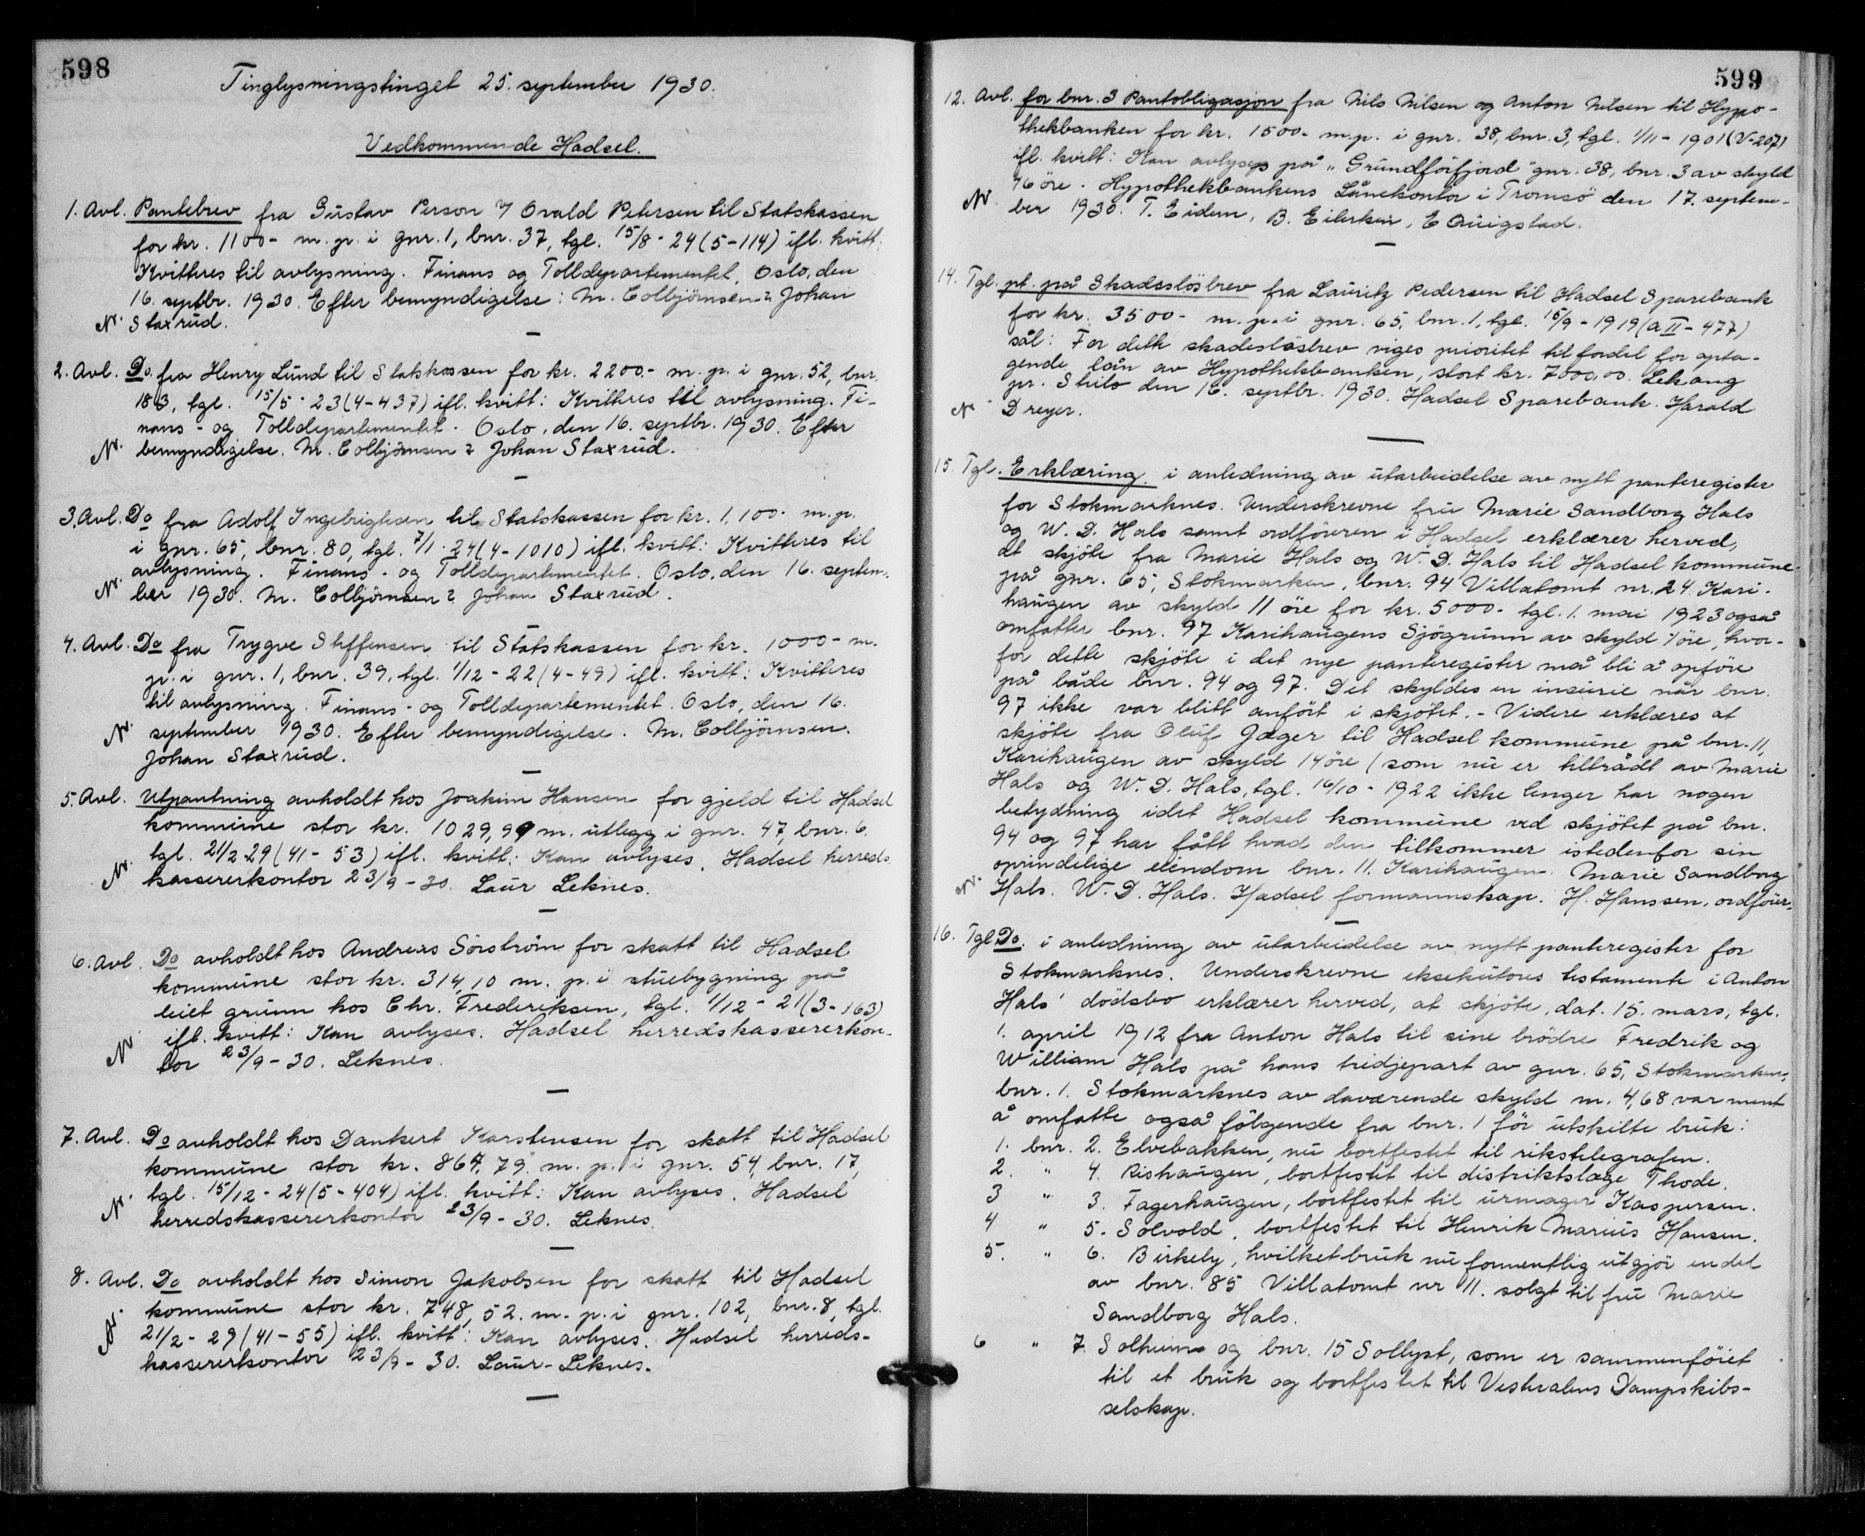 598
Tinglysningstinget 25. september 1930.
Vedkommende Hadsel.
1. Avl. Pantebrev fra Gustav Person & Orald Petersen til Statskassen
for kr. 1100- m. p. i gnr. 1, bnr. 37, tgl. 15/8 - 24 (5-114) ifl. kvitt.
Kvitteres til avlysning. Finans og Tolldepartementet, Oslo, den
16. septbr. 1930. Efter bemyndigelse: M. Colbjörnsen ? Johan
N. Staxrud.
2. Avl. Do. fra Henry Lund til Statskassen for kr. 2200.- m. p. i gnr. 52, bnr.
183, tgl. 15/5 - 23 (4-437) ifl. kvitt: Kvitteres til avlysning. Fi-
nans- og Tolldepartementet. Oslo, den 16. septbr. 1930. Efter
N. bemyndigelse. M. Colbjörnsen ? Johan Staxrud.
3. Avl. Do fra Adolf Ingebrigtsen til Statskassen for kr. 1,100- m. p.
i gnr. 65, bnr. 80, tgl. 7/1 - 24 (4-1010) ifl. kvitt: Kvitteres til
avlysning. Finans- og Tolldepartementet. Oslo, den 16. septem-
N. ber 1930. M. Colbjörnsen ? Johan Staxrud.
4. Avl. Do fra Trygve Steffensen til Statskassen for kr. 1000- m.
p. i gnr. 1, bnr. 39, tgl. 1/12 - 22 (4-49) ifl. kvitt: Kvitteres
til avlysning. Finans- og Tolldepartementet. Oslo, den 16.
N. september 1930. Efter bemyndigelse. M. Colbjörnsen.
Johan Staxrud.
5. Avl. Utpantning avholdt hos Joakim Hansen for gjeld til Hadsel
kommune stor kr. 1029,99 m. utlegg i gnr. 47, bnr. 6,
tgl. 21/2 29 (41-53) ifl. kvitt: Kan avlyses. Hadsel herreds-
N. kassererkontor 23/9-30. Laur Leknes.
6. Avl. Do avholdt hos Andreas Sörström for skatt til Hadsel
kommune stor kr. 314,10 m. p. i stuebygning på
leiet grunn hos Chr. Frederiksen, tgl. 1/12 - 21 (3-163)
ifl. kvitt: Kan avlyses. Hadsel herredskassererkon-
N. tor 23/9-30. Leknes.
7. Avl. Do avholdt hos Dankert Karstensen for skatt til Hadsel
kommune stor kr. 864,79 m. p. i gnr. 54, bnr. 17,
tgl. 15/12 - 24 (5-404) ifl. kvitt: Kan avlyses. Hadsel
N. herredskassererkontor 23/9-30. Leknes.
8. Avl. Do avholdt hos Simon Jakobsen for skatt til Hadsel
kommune stor kr. 748,52. m. p. i gnr. 102, bnr. 8, tgl.
N. 21/2 - 29 (41-55) ifl. kvitt: Kan avlyses. Hadsel herreds-
kassererkontor 23/9-30. Laur-Leknes.
599
12. Avl. for bnr. 3 Pantobligasjon fra Nils Nilsen og Anton Nilsen til Hypo-
thekbanken for kr. 1500- m. p. i gnr. 38, bnr. 3, tgl. 1/11 - 1901 (V-207)
ifl. kvitt: Kan avlyses på "Grundförfjord" gnr. 38, bnr. 3 av skyld
76 öre. Hypothekbankens Lånekontor i Tromsö den 17. septem-
N. ber 1930. T. Eidem, B. Eilertsen, E Quigstad.
14. Tgl. pt. på Skadeslösbrev fra Lauritz Pedersen til Hadsel Sparebank
for kr. 3500- m. p. i gnr. 65, bnr. 1, tgl. 15/9 - 1919 (a II - 477)
sål: For dette skadeslösbrev viges prioritet til fordel for opta-
gende lån av Hypothekbanken, stort kr. 7000,00. Lekang
pr. Stilo den 16. septbr. 1930. Hadsel Sparebank. Harald
N. Dreyer.
15. Tgl. Erklæring i anledning av utarbeidelse av nytt panteregister
for Stokmarknes. Underskrevne fru Marie Sandborg Hals
og W. D. Hals samt ordföreren i Hadsel erklærer herved,
at skjöte fra Marie Hals og W. D. Hals til Hadsel kommune
på gnr. 65, Stokmarken, bnr. 94 Villatomt nr. 24 Kari-
haugen av skyld 11 öre for kr. 5000- tgl. 1. mai 1923 også
omfatter bnr. 97 Karihaugens Sjögrunn av skyld 1 öre, hvor-
for dette skjöte i det nye panteregister må bli å opföre
på både bnr. 94 og 97. Det skyldes en incurie når bnr.
97 ikke var blitt anfört i skjötet. - Videre erklæres at
skjöte fra Oluf Jæger til Hadsel kommune på bnr. 11,
Karihaugen av skyld 14 öre (som nu er tiltrådt av Marie
Hals og W. D. Hals, tgl. 16/10 - 1922 ikke lenger har nogen
betydning idet Hadsel kommune ved skjötet på bnr.
94 og 97 har fått hvad den tilkommer istedenfor sin
oprindelige eiendom bnr. 11. Karihaugen. Marie Sandborg
N. Hals. W. D. Hals. Hadsel formannskap. H. Hanssen, ordförer.
16. Tgl Do. i anledning av utarbeidelse av nytt panteregister for
Stokmarknes. Underskrevne eksekutores testamente i Anton
Hals' dödsbo erklærer herved, at skjöte, dat. 15. mars, tgl.
1. april 1912 fra Anton Hals til sine brödre Fredrik og
William Hals på hans tredjepart av gnr. 65, Stokmarken,
bnr. 1. Stokmarknes av daværende skyld m. 4,68 var ment
å omfatte også fölgende fra bnr. 1 för utskilte bruk:
1. bnr. 2. Elvebakken, nu bortfestet til rikstelegrafen.
2. " 4. Rishaugen, bortfestet til distriktslæge Thode.
3 " 3. Fagerhaugen, bortfestet til urmager Kaspersen.
4 " 5. Solvold, bortfestet til Henrik Marius Hansen.
5. " 6. Birkely, hvilket bruk nu formentlig utgjör en del
av bnr. 85 Villatomt nr 11. solgt til fru Marie
Sandborg Hals.
6 " 7. Solheim og bnr. 15 Sollyst, som er sammenföiet
til et bruk og bortfestet til Vesteralens Dampskibs-
selskap.